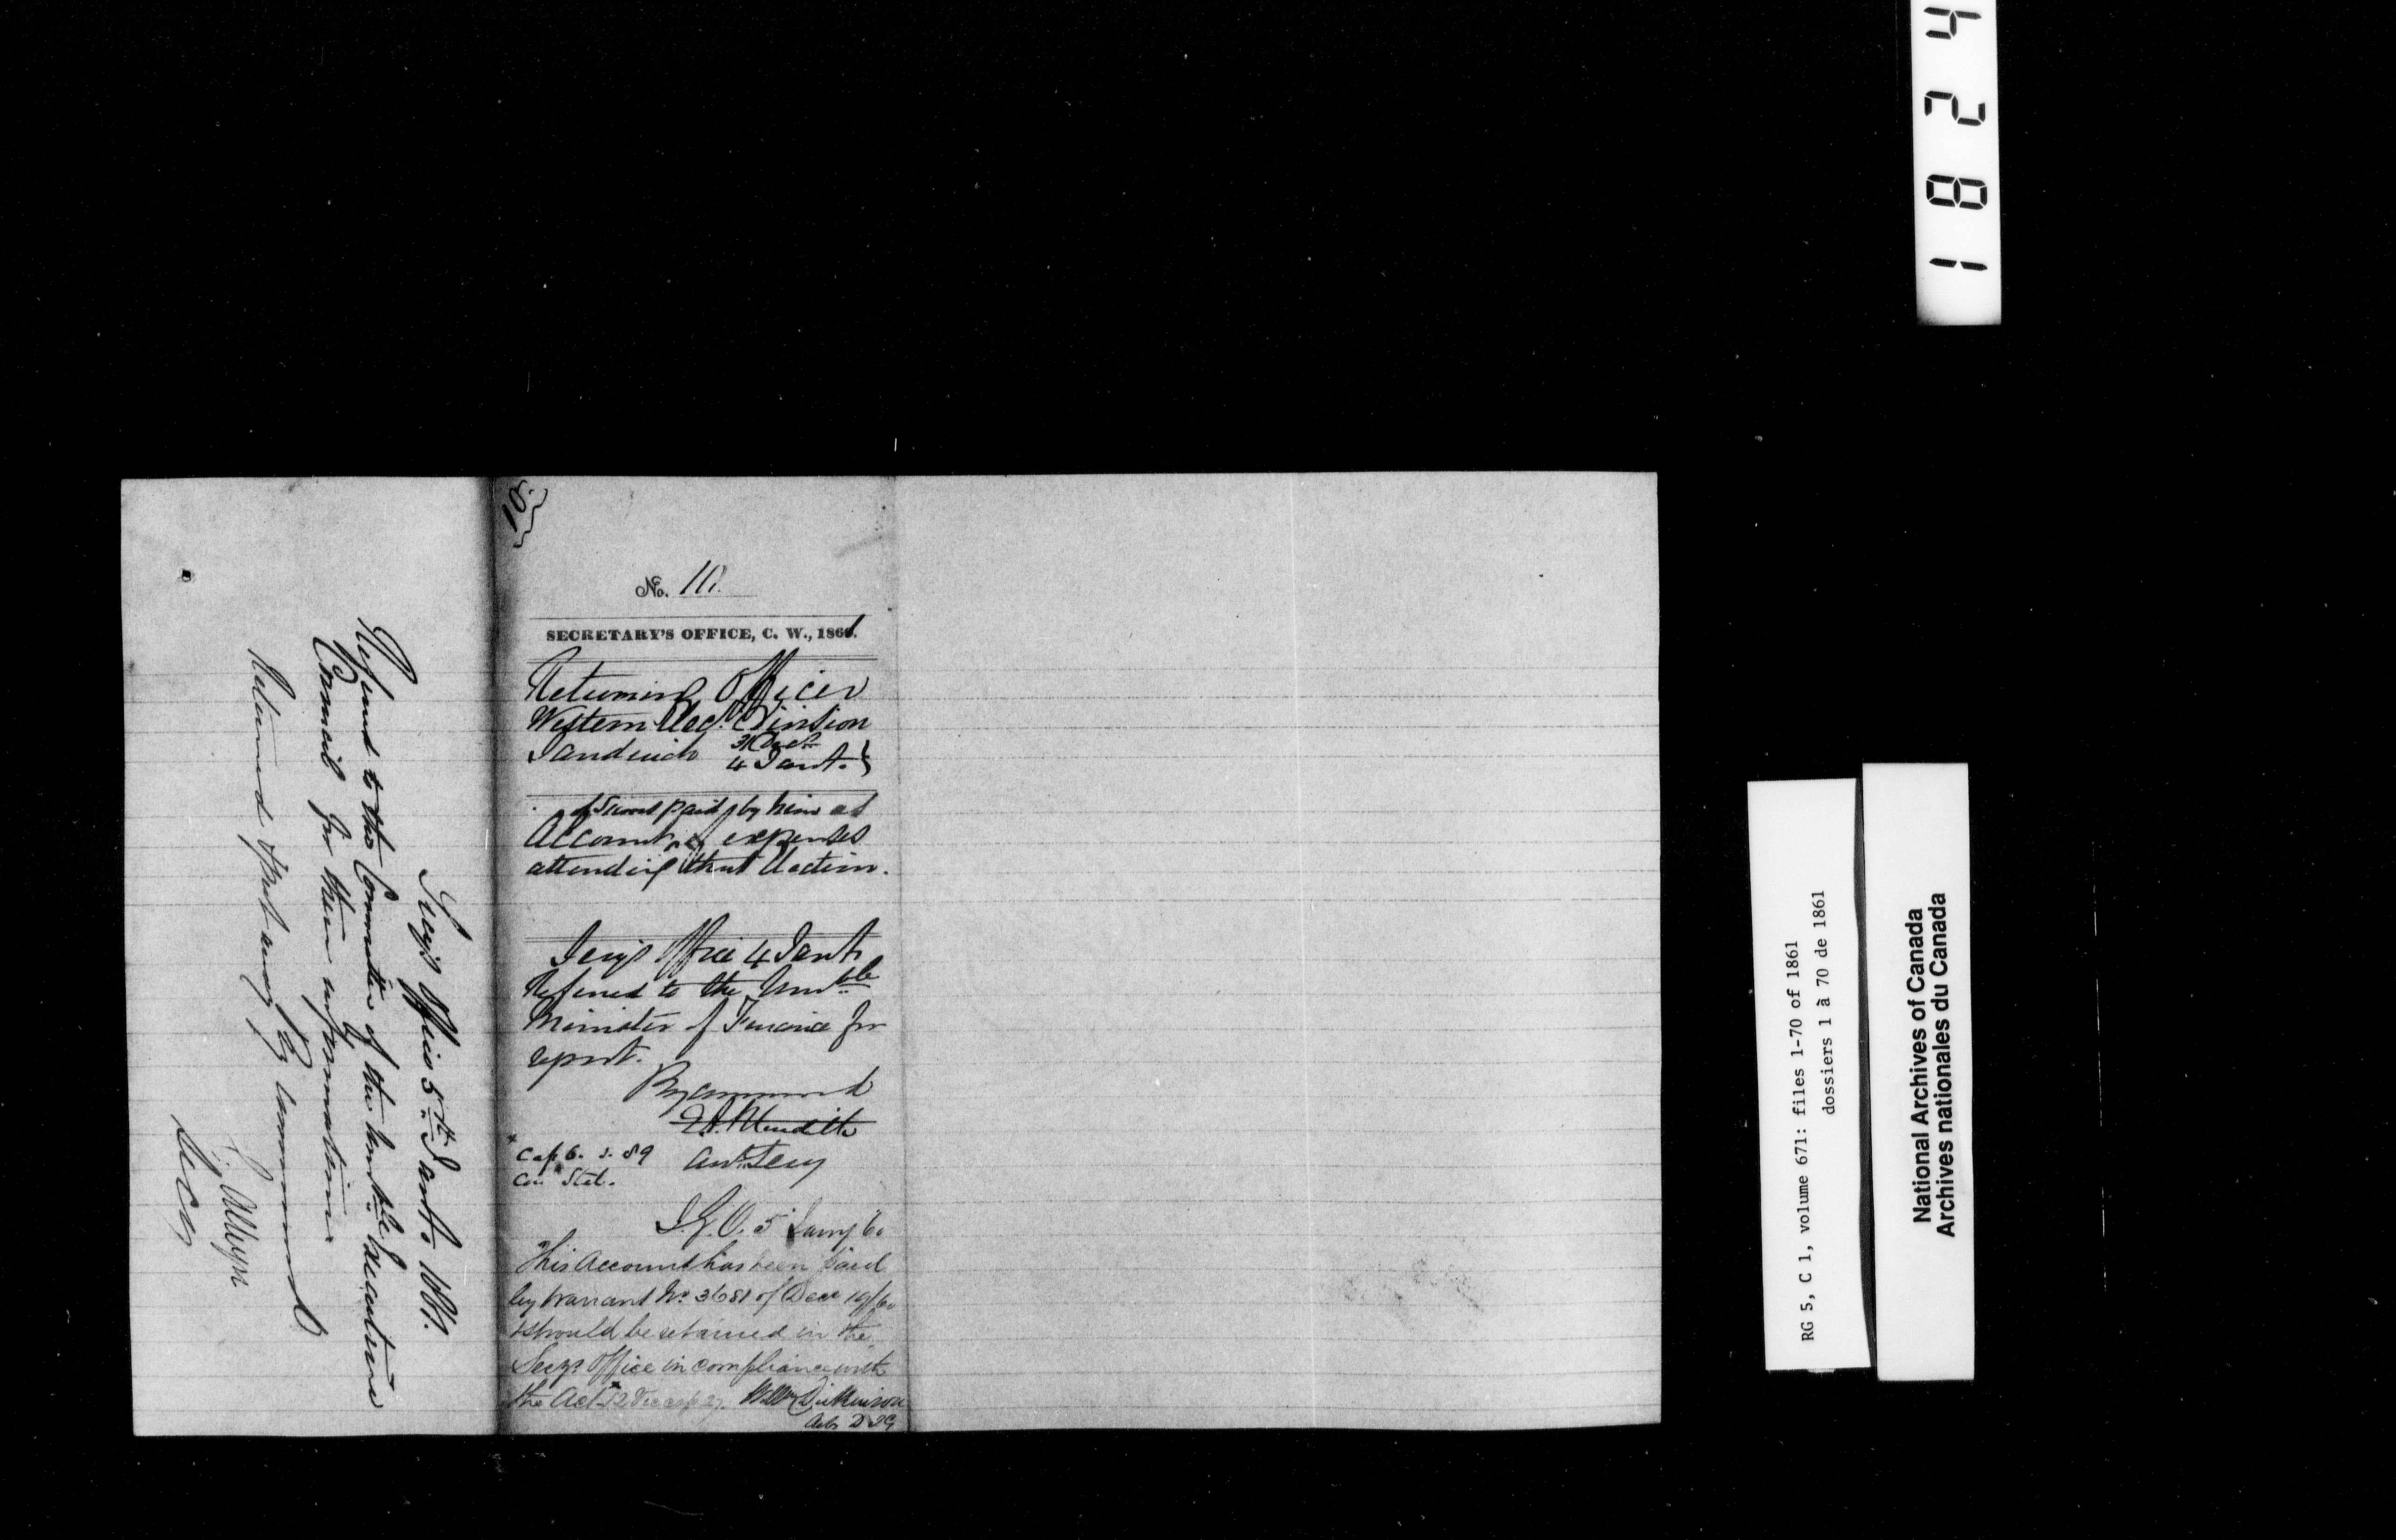 10.
No. 10.
SECRETARY'S OFFICE, C. W., 1861.
Returning Officer
Western Elec. Division
Sandwich 31 Decr
4 Jany.
of sums paid by him as
Account of expenses
attending that Election.
Secy's Office 4 Jany
Referred to the Honble
Minister of Finance for
report.
By command
E. A. Meredith
Asst. Secy
* Cap 6. s. 89
Con Stat.
I. G. O. 5 Jany 6
This Account has been paid
by Warrant No. 3681 of Decr 19/60
& should be retained in the
Secys Office in compliance with
the Act * 12 Vic cap 27. Willm Dickinson
Actg D I G
Secy's Office 5th Jany. 1861.
Referred to the Committee of the Honble Executive
Council for their information
By command
C. Alleyn
Secy
Returned
4281
RG 5, C 1, volume 671: files 1-70 of 1861
dossiers 1 à 70 de 1861
National Archives of Canada
Archives nationales du Canada